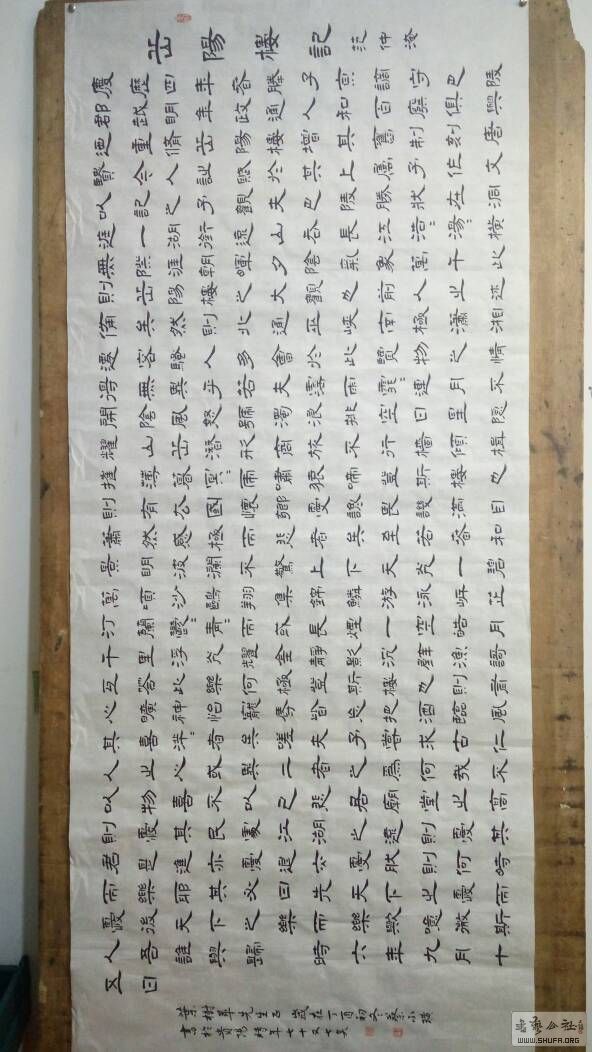 岳陽樓記 范仲淹
慶歷四年春滕子京謫守巴陵
郡越明年政通人和百廢俱興
迺重脩岳陽樓增其舊制刻唐
賢今人詩賦於其上屬予作文
以記之予觀夫巴陵勝狀在洞
庭一湖銜遠山吞長江浩〻湯〻橫
無際涯朝暉夕陰氣象萬千此
則岳陽樓之大觀也前人之述
備矣然則北通巫峽南極瀟湘
遷客騷人多會於此覽物之情
得無異乎若夫霪雨霏〻連月不
開陰風怒號濁浪排空日星隱
耀山岳潛形商旅不行檣傾楫
摧薄暮冥〻虎嘯猿啼登斯樓也
則有去國懷鄉憂讒畏譏滿目
蕭然感極而悲者矣至若春和
景明波瀾不驚上下天光一碧
萬頃沙鷗翔集錦鱗游泳岸芷
汀蘭鬱〻青〻而或長煙一空皓月
千里浮光耀金靜影沉璧漁歌
互答此樂何極登斯樓也則有
心曠神怡寵辱皆忘把酒臨風
其喜洋〻者矣嗟夫予嘗求古仁
人之心或異二者之為何哉不
以物喜不以己悲居廟堂之高
則憂其民處江湖之遠則憂其
君是進亦憂退亦憂然則何時
而樂耶其必曰先天下之憂而
憂後天下之樂而樂歟噫微斯
人吾誰與歸時六年九月十
五日
樹華先生正 歲在丁酉初冬 蔡小
書於貴陽 時年七十又七矣
WWW.SHUFA.ORG